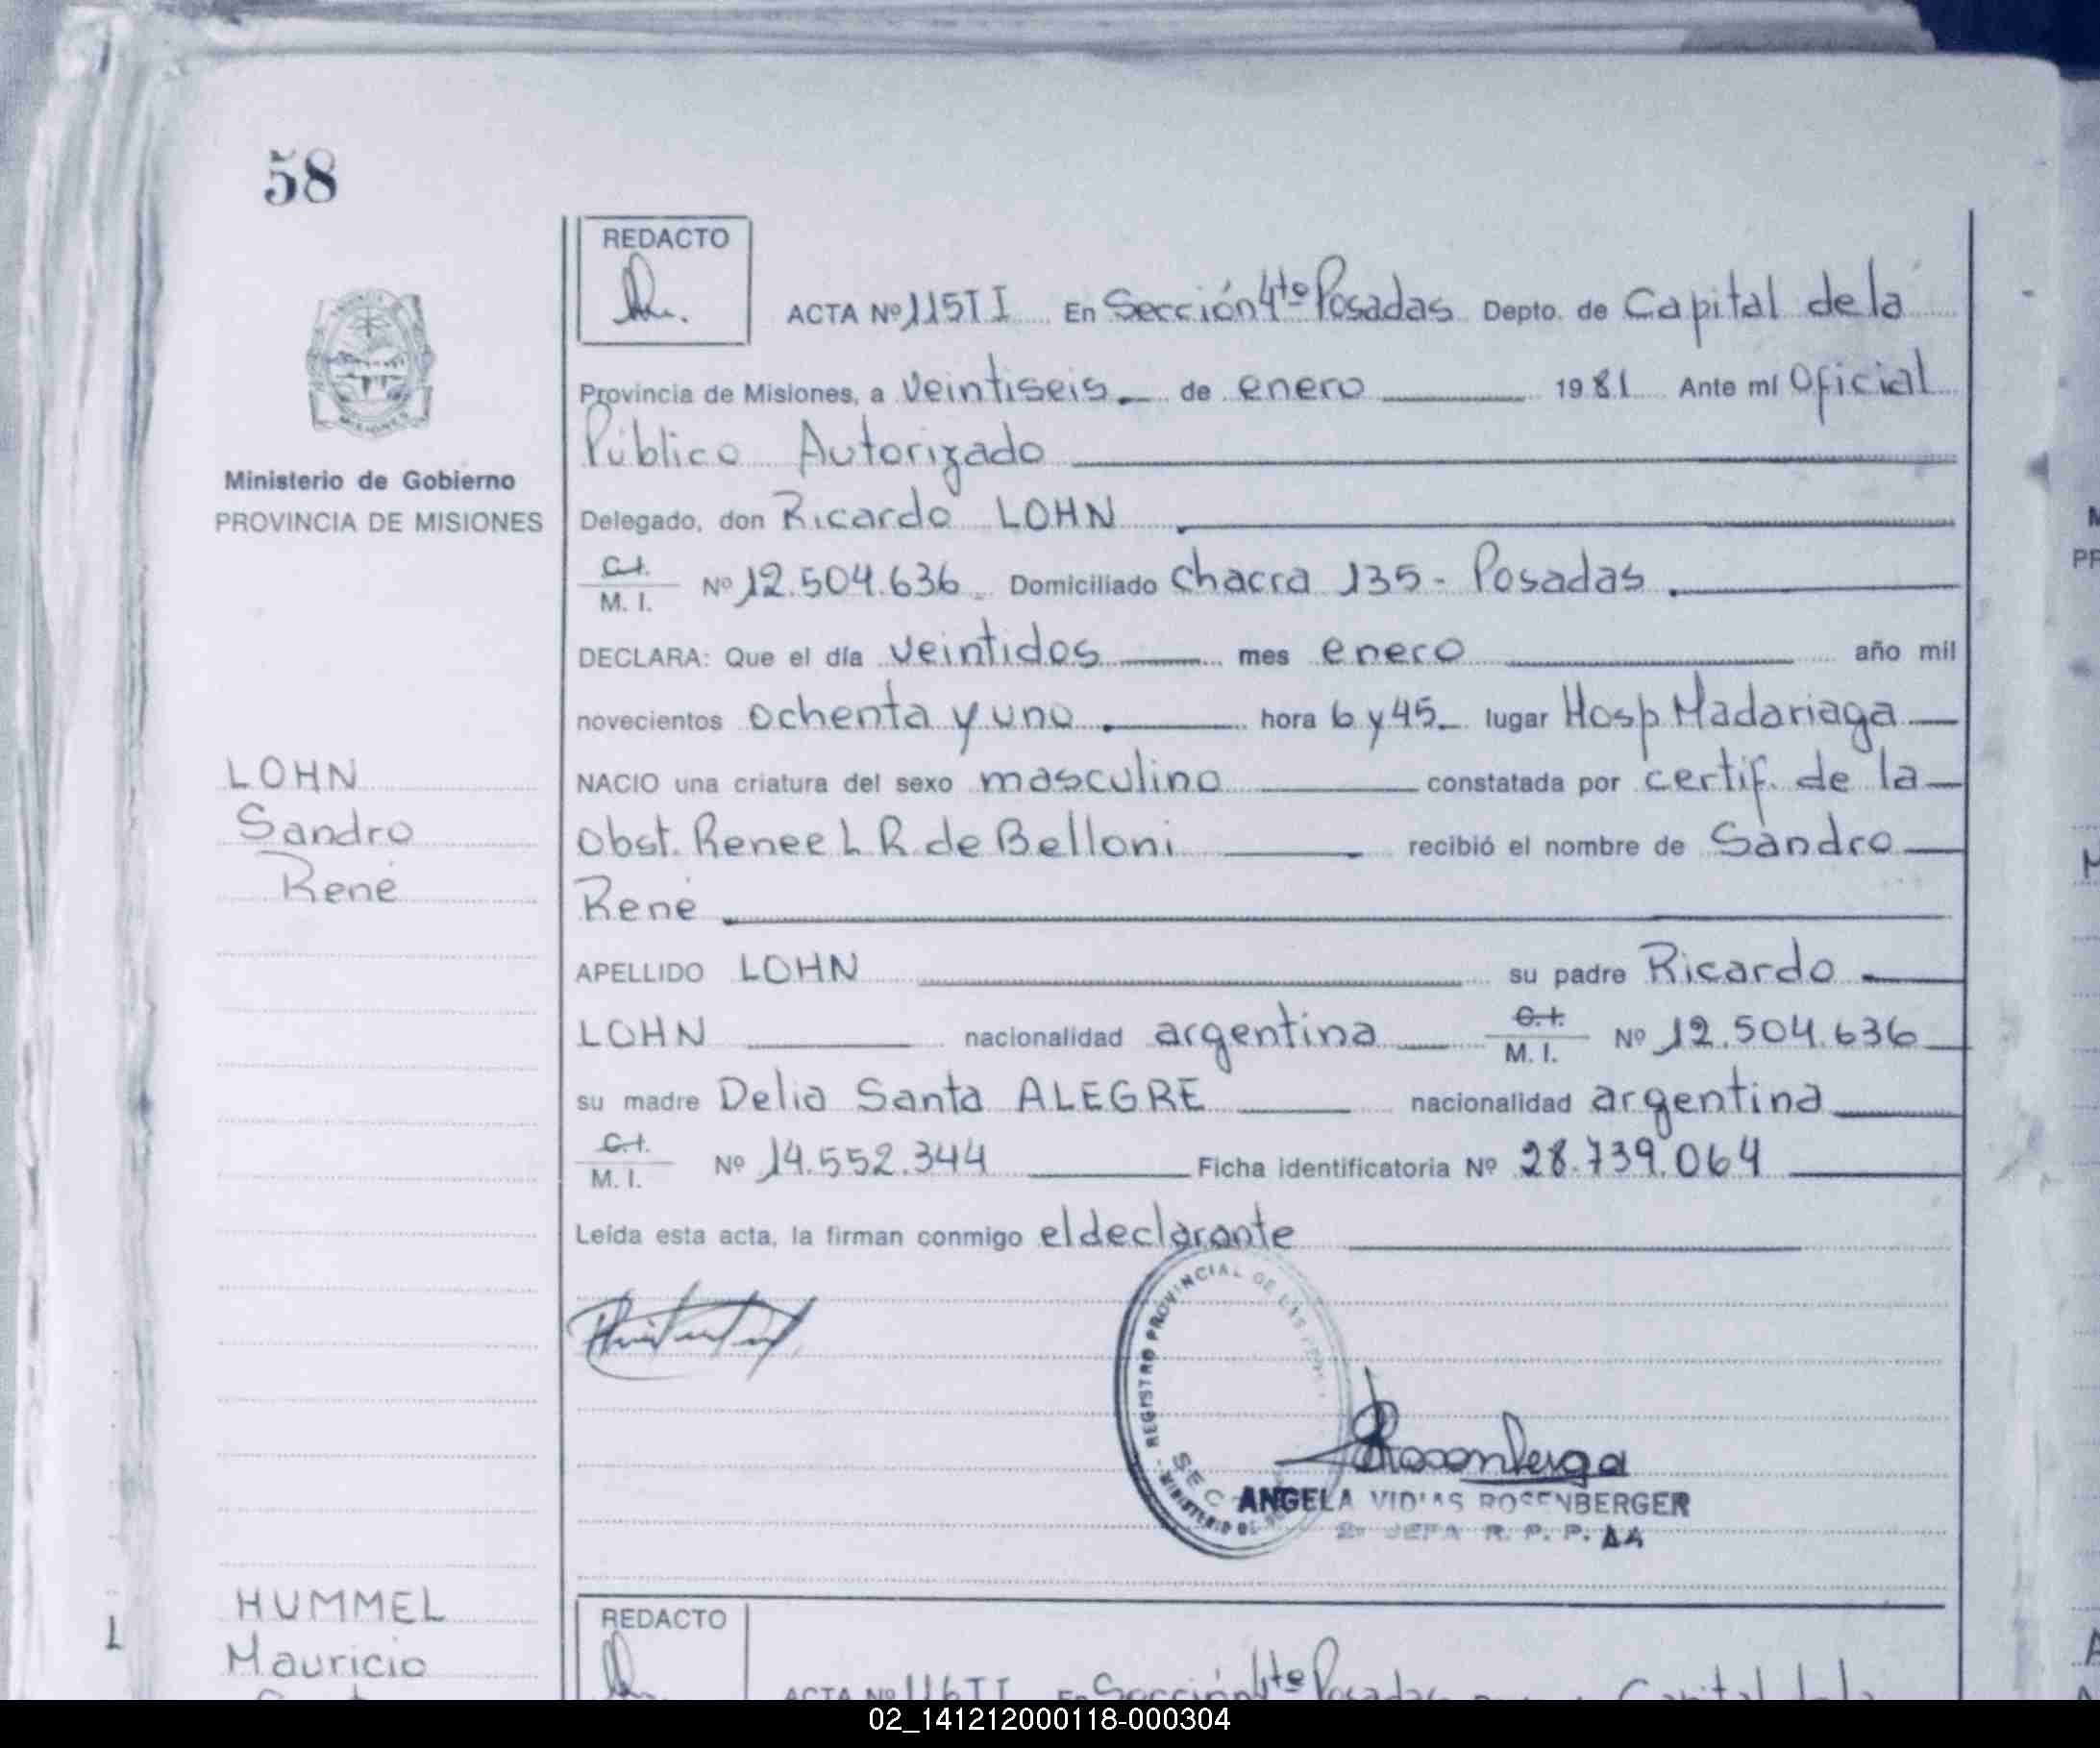 58
REDACTO
ACTA Nº 115 T I En Sección 4te Posadas Depto. de Capital de la
Provincia de Misiones, a veintiseis de enero 1981 Ante mí Oficial
Público Autorizado
Ministerio de Gobierno
PROVINCIA DE MISIONES
Delegado, don Ricardo LOHN
C.I.
M. I. Nº 12.504.636 Domiciliado chacra 135 - Posadas.
DECLARA: Que el día veintidos mes enero año mil
novecientos ochenta y uno hora 6 y 45 lugar Hosp Madariaga
LOHN
Sandro
René
NACIO una criatura del sexo masculino constatada por certif. de la
Obst. Renee L R de Belloni recibió el nombre de Sandro
René
APELLIDO LOHN su padre Ricardo
LOHN nacionalidad argentina C.I. M. I. Nº 12.504.636
su madre Delia Santa ALEGRE nacionalidad argentina
C.I.
M. I. Nº 14.552.344 Ficha identificatoria Nº 28.739.064
Leída esta acta, la firman conmigo el declarante
REGISTRO PROVINCIAL DE LAS
SEC
MINISTERIO DE
ANGELA VIDIAS ROSENBERGER
JEFA R. P. P. AA
HUMMEL
Mauricio
REDACTO
ACTA Nº 116 T I En Sección 4te Posadas Capital de la
02_141212000118-000304